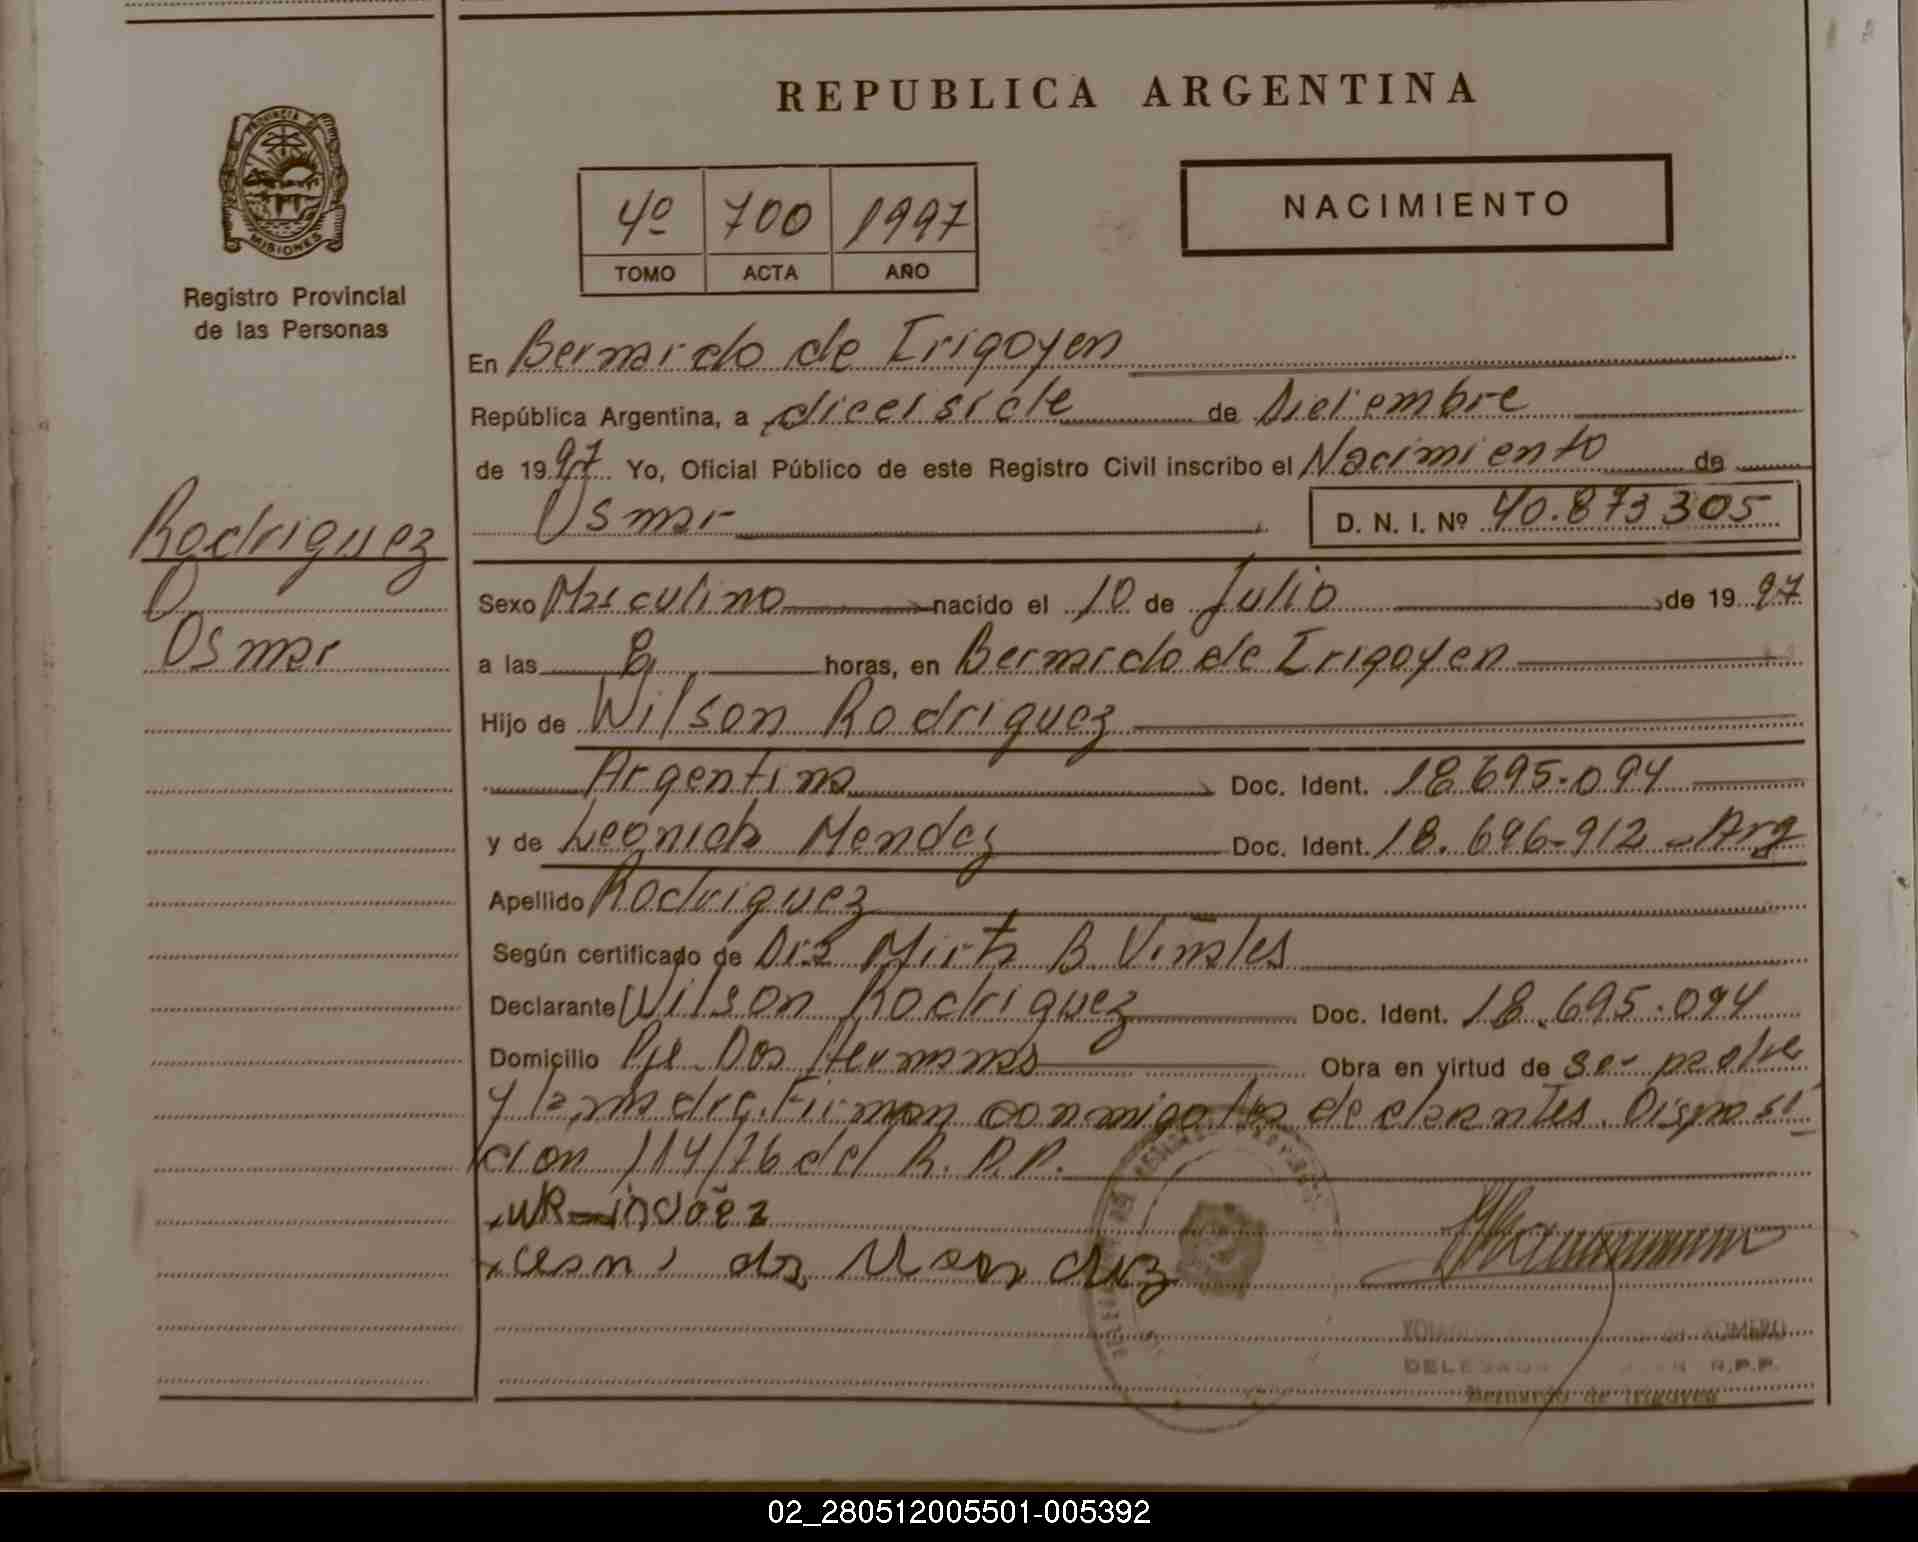 REPUBLICA ARGENTINA
PROVINCIA DE
MISIONES
Registro Provincial
de las Personas
4º 700 1997
TOMO ACTA AÑO
NACIMIENTO
En Bernardo de Irigoyen
República Argentina, a dicei siete de Diciembre
de 1997 Yo, Oficial Público de este Registro Civil inscribo el Nacimiento de
Osmar D. N. I. Nº 40.873305
Rodriguez
Osmar
Sexo Masculino nacido el 10 de Julio de 1997
a las 8 horas, en Bernardo de Irigoyen
Hijo de Wilson Rodriguez
Argentina Doc. Ident. 18.695.094
y de Leonida Mendez Doc. Ident. 18.696-912 - Arg
Apellido Rodriguez
Según certificado de Dra Mirta B. Viñales
Declarante Wilson Rodriguez Doc. Ident. 18.695.094
Domicilio Pje Dos Hermanas Obra en virtud de ser padre
y la madre. Firman conmigo los declarantes. Disposi
cion 114/76 del R.P.P.
DELEGADA R.P.P.
Bernardo de Irigoyen
02_280512005501-005392